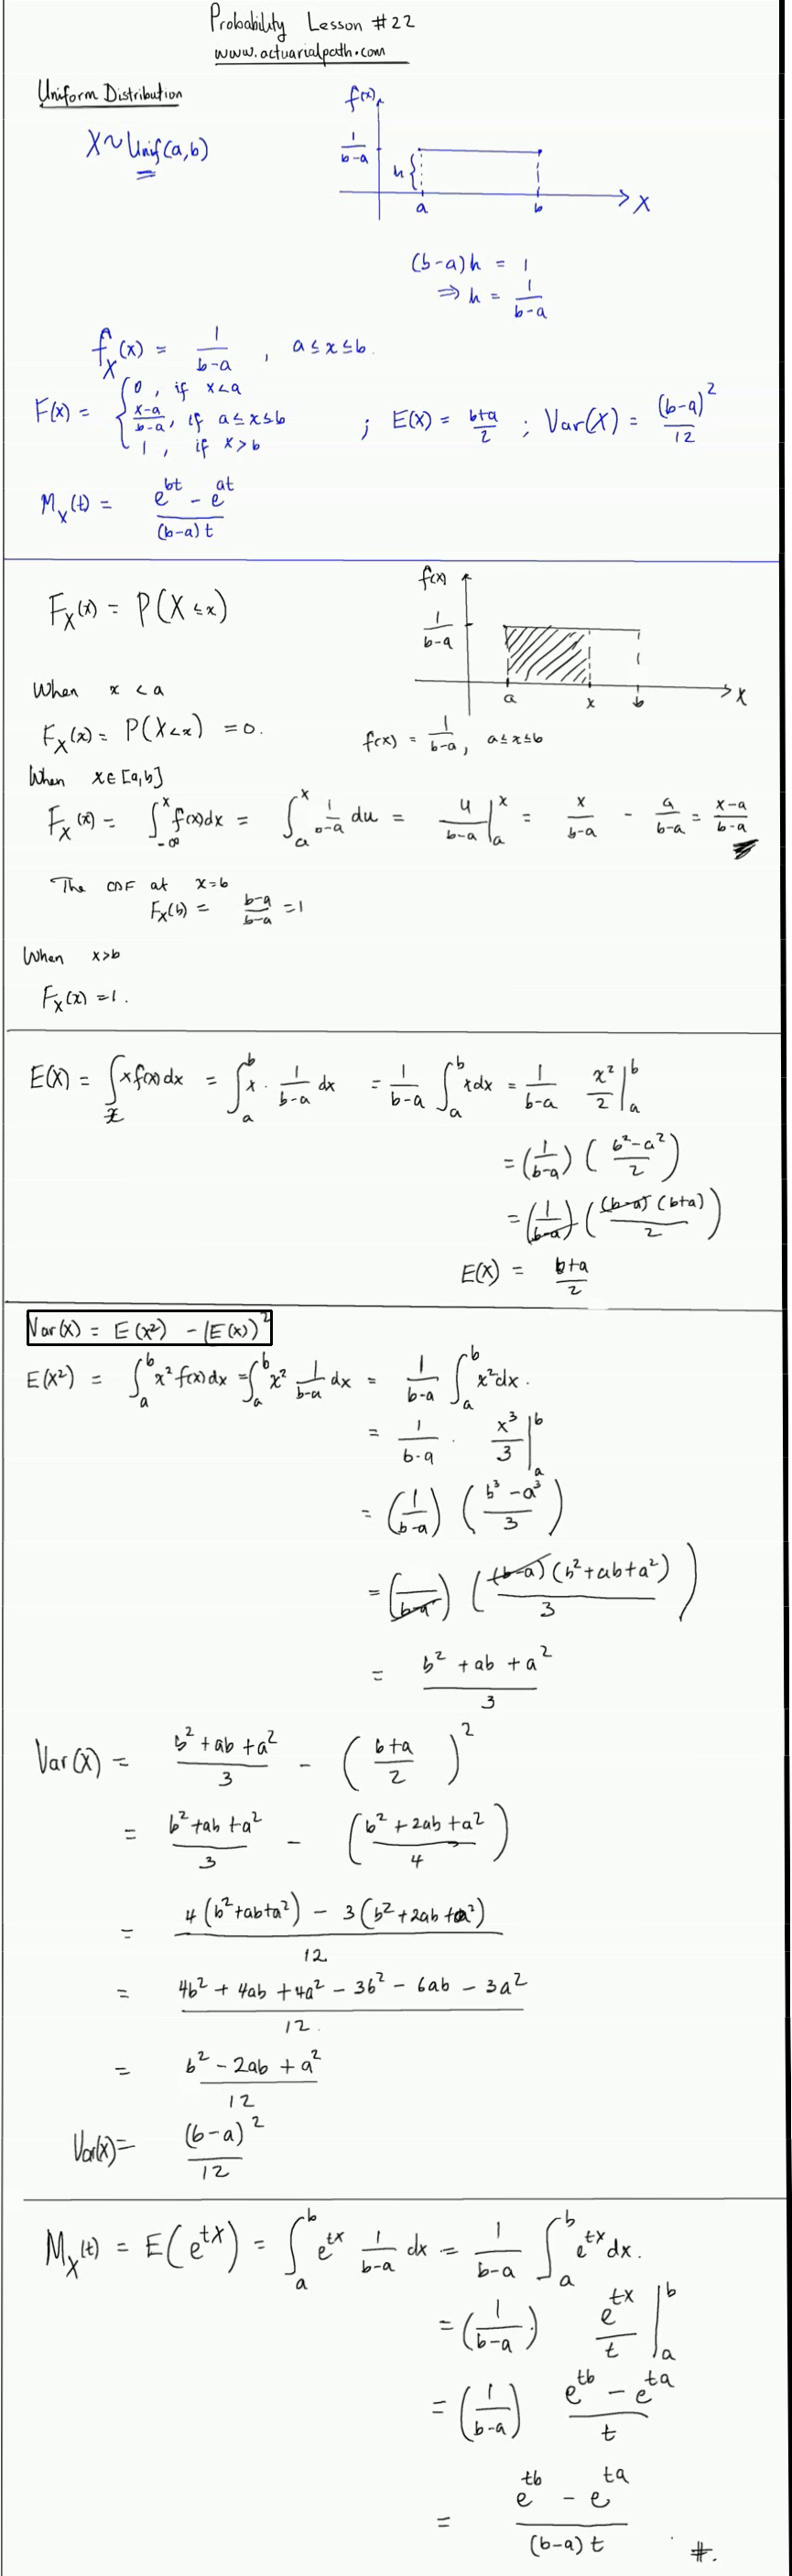 Probability Lesson #22
www.actuarialpath.com
Uniform Distribution
X~Unif(a,b)
f(x)
1/(b-a)
h{
a b X
(b-a)h = 1
⇒ h = 1/(b-a)
f_X(x) = 1/(b-a) , a ≤ x ≤ b.
F(x) = { 0 , if x<a
(x-a)/(b-a), if a ≤ x ≤ b
1 , if x>b
; E(X) = (b+a)/2 ; Var(X) = (b-a)²/12
M_X(t) = (e^bt - e^at)/((b-a)t)
F_X(x) = P(X ≤ x)
f(x)
1/(b-a)
a x b X
f(x) = 1/(b-a), a ≤ x ≤ b
When x < a
F_X(x) = P(X<x) = 0.
When x ∈ [a,b]
F_X(x) = ∫_-∞^x f(x)dx = ∫_a^x 1/(b-a) du = u/(b-a) |_a^x = x/(b-a) - a/(b-a) = (x-a)/(b-a)
The CDF at x=b
F_X(b) = (b-a)/(b-a) = 1
When x>b
F_X(x) = 1.
E(X) = ∫_x x f(x) dx = ∫_a^b x · 1/(b-a) dx = 1/(b-a) ∫_a^b x dx = 1/(b-a) x²/2 |_a^b
= (1/(b-a)) ((b²-a²)/2)
= (1/(b-a)) ((b-a)(b+a)/2)
E(X) = (b+a)/2
Var(X) = E(X²) - (E(X))²
E(X²) = ∫_a^b x² f(x) dx = ∫_a^b x² 1/(b-a) dx = 1/(b-a) ∫_a^b x² dx.
= 1/(b-a) · x³/3 |_a^b
= (1/(b-a)) ((b³ - a³)/3)
= (1/(b-a)) ((b-a)(b²+ab+a²)/3)
= (b² + ab + a²)/3
Var(X) = (b²+ab+a²)/3 - ((b+a)/2)²
= (b²+ab+a²)/3 - ((b²+2ab+a²)/4)
= (4(b²+ab+a²) - 3(b²+2ab+a²))/12
= (4b² + 4ab + 4a² - 3b² - 6ab - 3a²)/12.
= (b² - 2ab + a²)/12
Var(X) = (b-a)²/12
M_X(t) = E(e^tX) = ∫_a^b e^tx 1/(b-a) dx = 1/(b-a) ∫_a^b e^tx dx.
= (1/(b-a)) e^tx/t |_a^b
= (1/(b-a)) (e^tb - e^ta)/t
= (e^tb - e^ta)/((b-a)t) #.